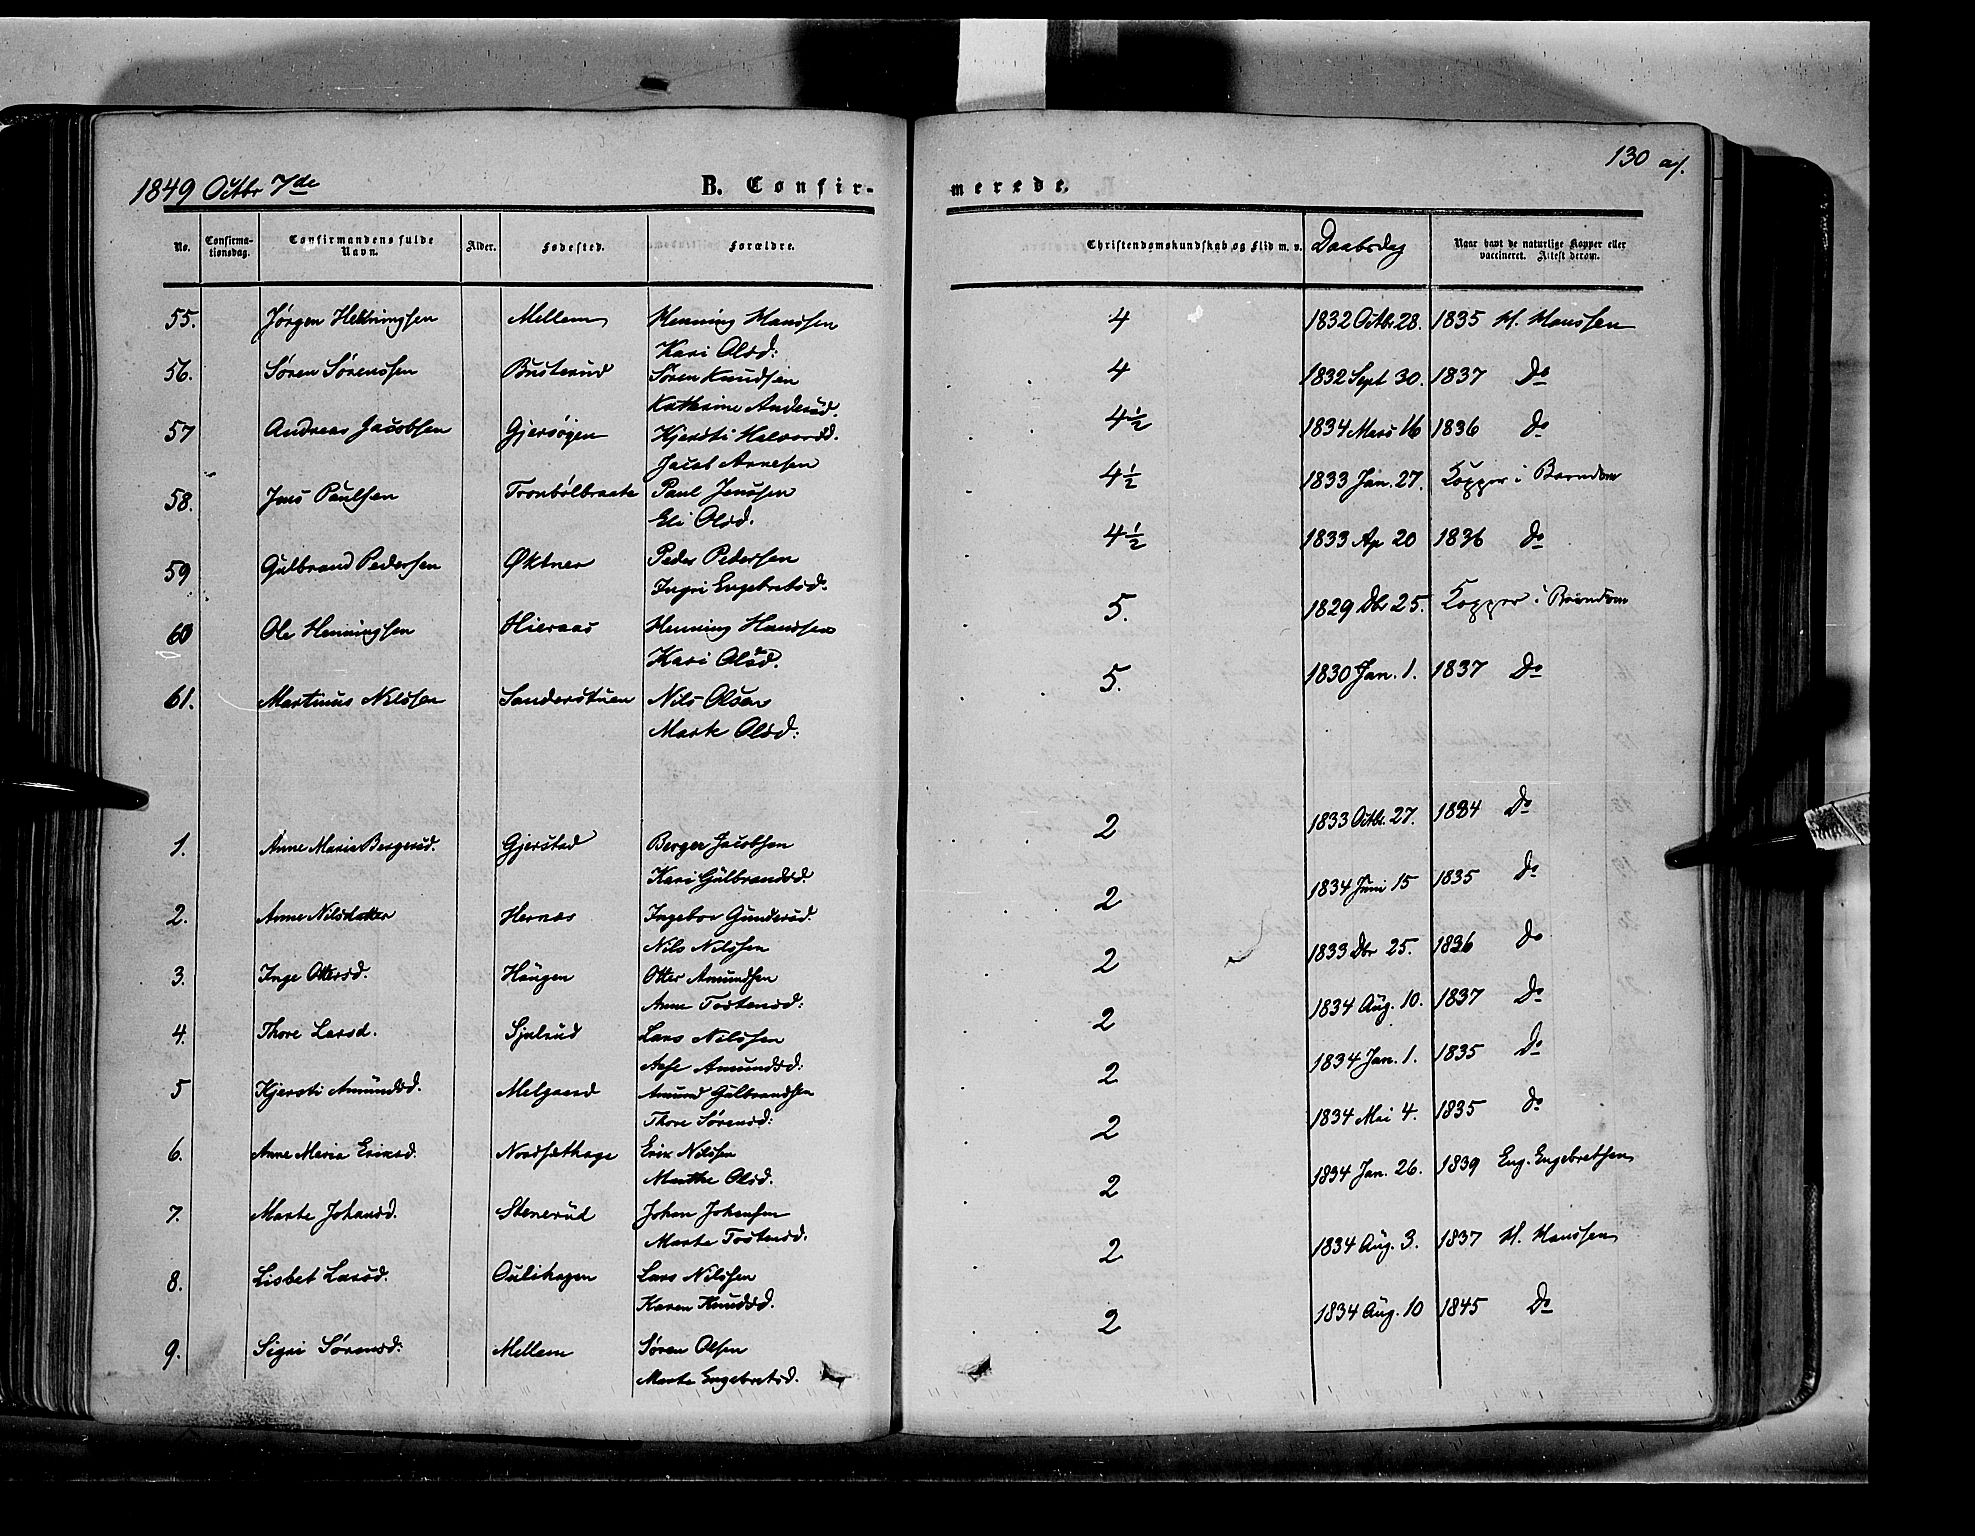 130 a/.
1849 Octbr 7de B. Confir- merede.
No. Confirma- tionsdag. Confirmandens fulde Navn. Alder. Fødested. Forældre. Christendomskundskab og Flid m. v. Daabsdag Naar havt de naturlige Kopper eller vaccineret. Attest derom.
55. Jørgen Henningsen Mellem Henning Hanssen 4 1832 Octbr 28. 1835 H. Hanssen
Kari Olsd:
56. Søren Sørenssen Busterud Søren Knudsen 4 1832 Sept 30. 1837 Do
Kathrine Andersd.
57 Andreas Jacobsen Gjersøgen Kjersti Halvorsd. 4½ 1834 Mars 16 1836 do
Jacob Arnesen
58. Jens Paulsen Tronbølbraate Paul Jenssen 4½ 1833 Jan. 27. Kopper i Barndom
Eli Olsd.
59 Gulbrand Pedersen Øktner Peder Pedersen 4½ 1833 Ap 20 1836 do
Ingri Engebretsd.
60 Ole Henningsen Hieraas Henning Hanssen 5. 1829 Dbr 25. Kopper i Barndom
Kari Olsd.
61. Martinus Nilssen Sanderstuen Nils Olsen 5. 1830 Jan. 1. 1837 Do
Marte Olsd:
1. Anne Maria Bergersd. Gjerstad Berger Jacobsen 2 1833 Octbr. 27. 1834 Do
Kari Gulbrandsd.
2. Anne Nilsdatter Hernæs Ingebor Gundersd. 2 1834 Juni 15 1835 Do
Nils Nilssen
3. Inge Ottersd. Haugen Otter Amundsen 2 1833 Dbr 25. 1836 do
Anne Tostensd:
4. Thore Larsd. Sjulsud Lars Nilssen 2 1834 Aug. 10. 1837 Do
Aase Amundsd:
5 Kjersti Amundsd. Melgaard Amund Gulbrandsen 2 1834 Jan. 1. 1835 Do
Thore Sørensd:
6. Anne Maria Eriksd. Nordsæthage Erik Nilssen 2 1834 Mai 4. 1835 do
Marthe Olsd.
7. Marte Johansd. Stenerud Johan Johansen 2 1834 Jan. 26. 1839 Eng. Engebretsen
Marte Tostensd.
8. Lisbet Larsd. Oulihagen Lars Nilssen 2 1834 Aug. 3. 1837 H. Hanssen
Karen Knudsd.
9. Sigri Sørensd: Mellem Søren Olsen 2 1834 Aug. 10 1845 Do
Marte Engebretsd.